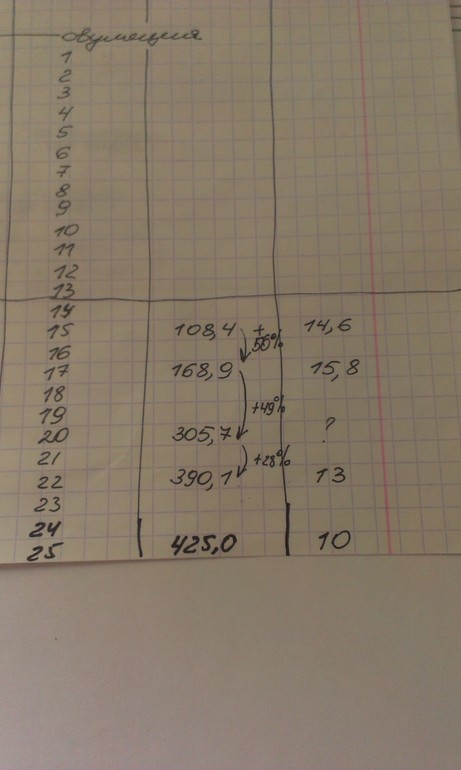 Овуляция
1
2
3
4
5
6
7
8
9
10
11
12
13
14
15 108,4 + 56% 14,6
16
17 168,9 15,8
18
19 +49%
20 305,7 ?
21 +28%
22 390,1 13
23
24
25 425,0 10